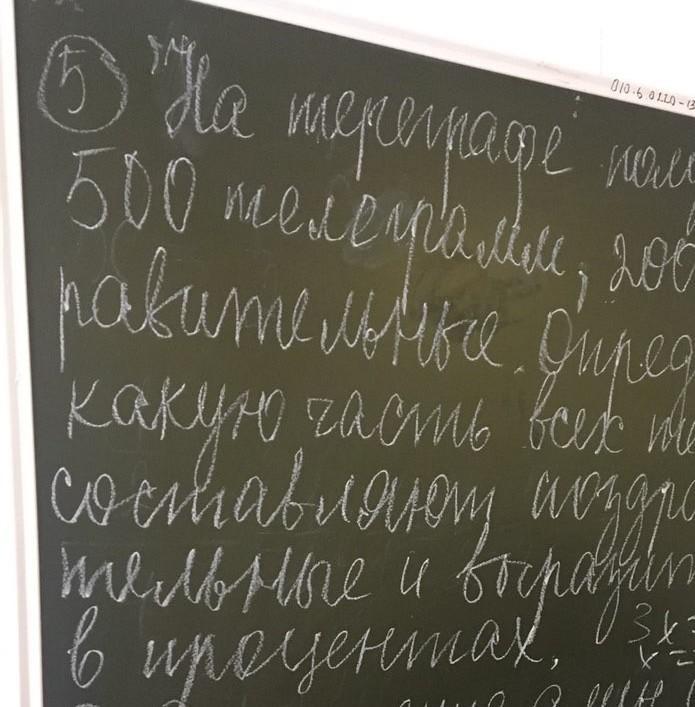 5 На телеграфе полу
500 телеграмм, 200
равительные. Опред
какую часть всех те
составляют поздра
тельные и выразит
в процентах. 3x=
x=